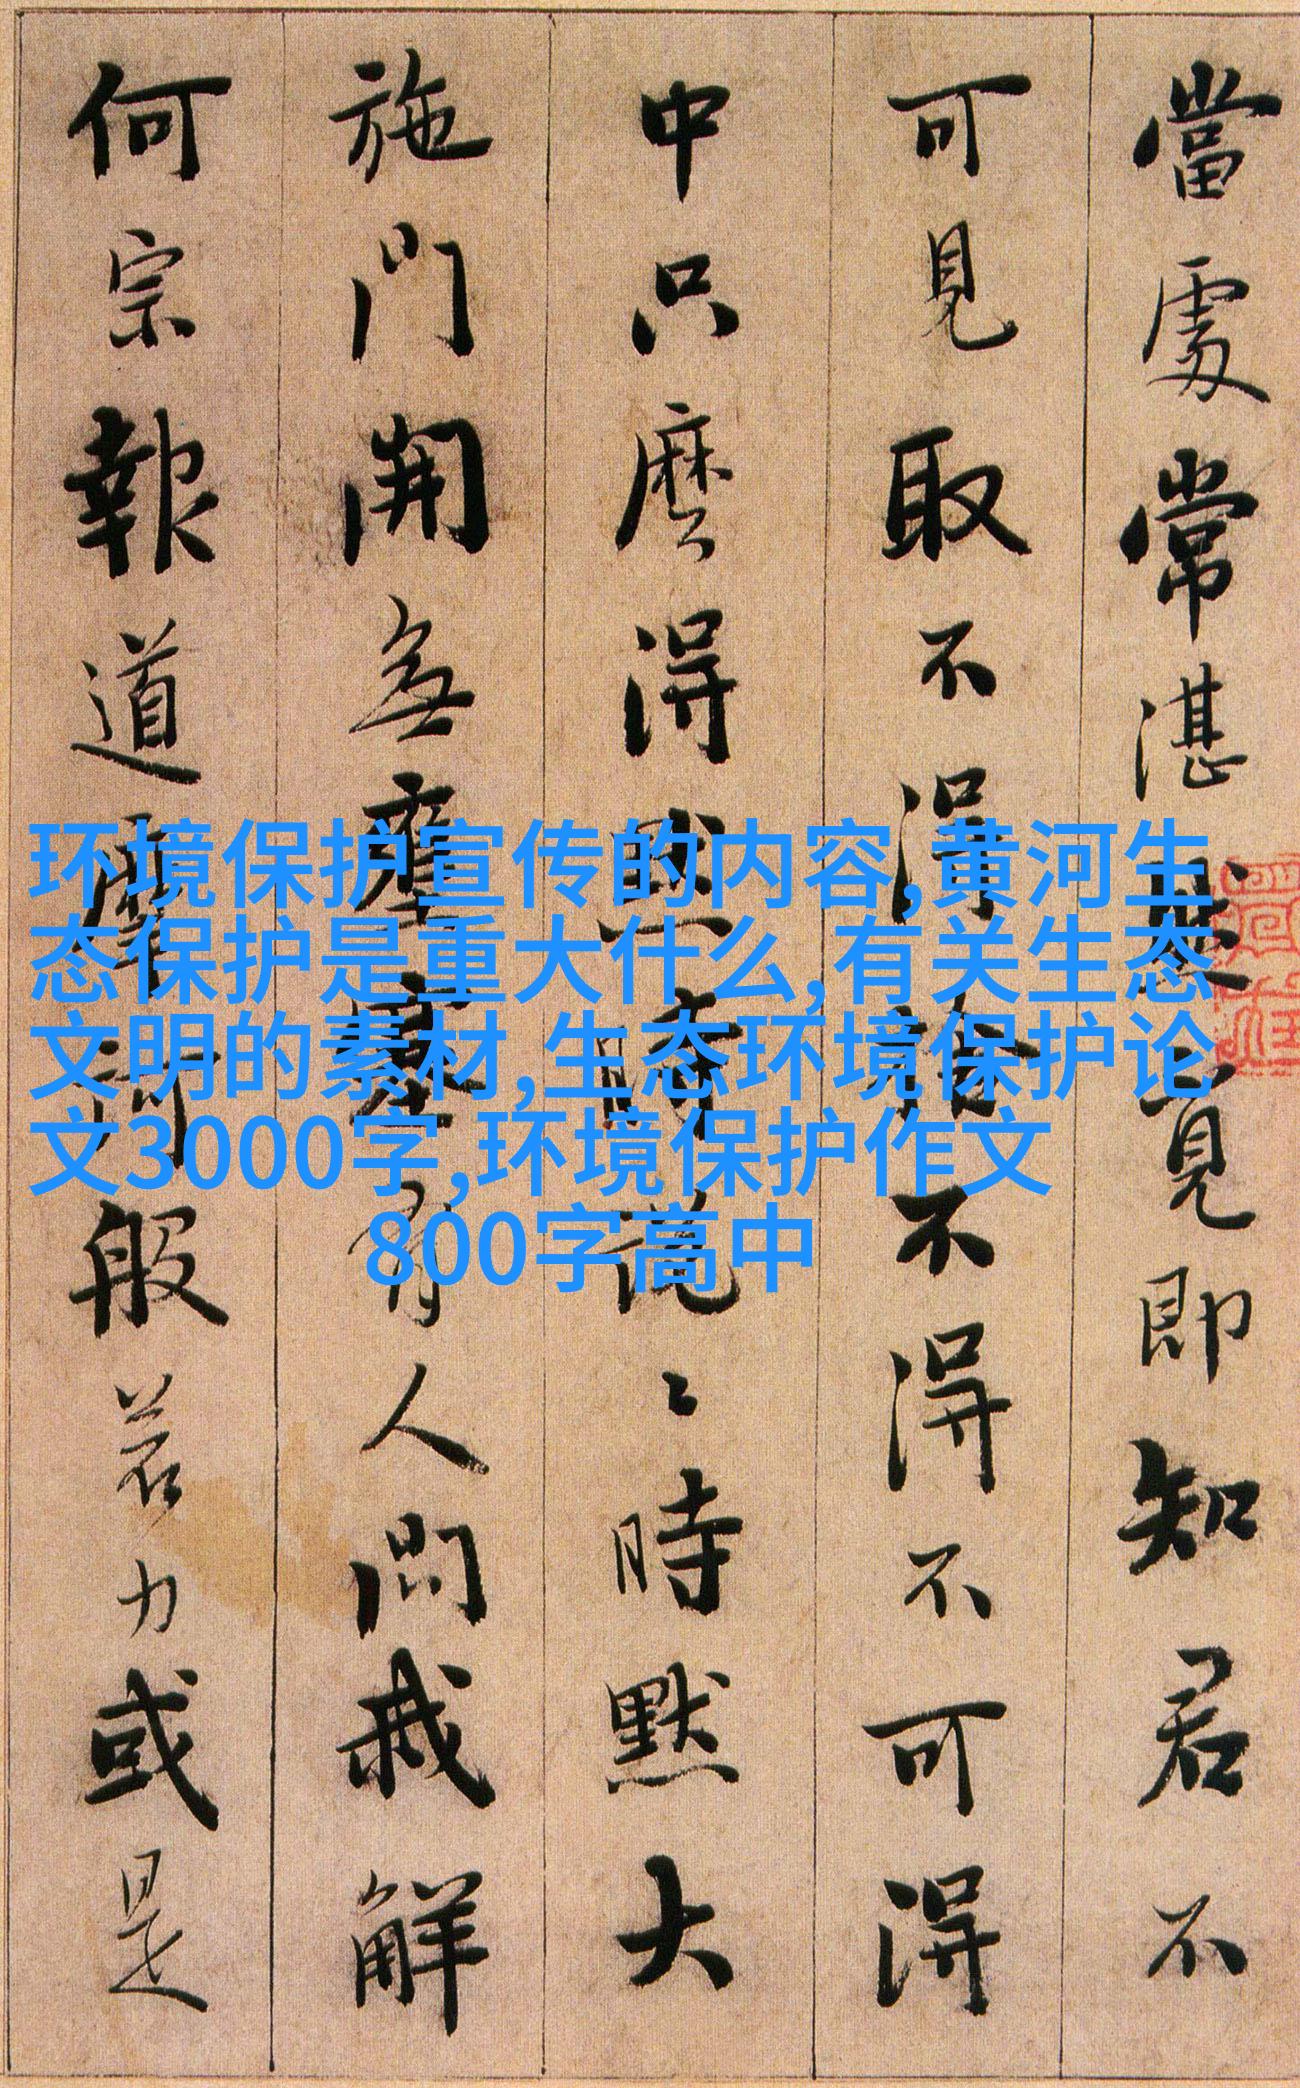 當處常湛然覓即知君不
可見取不得捨不得不可得
中只麼得默時說〻時默大
施門開無壅塞有人問我解
何宗報道摩訶般若力或是
环境保护宣传的内容,黄河生
态保护是重大什么,有关生态
文明的素材,生态环境保护论
文3000字,环境保护作文
800字高中